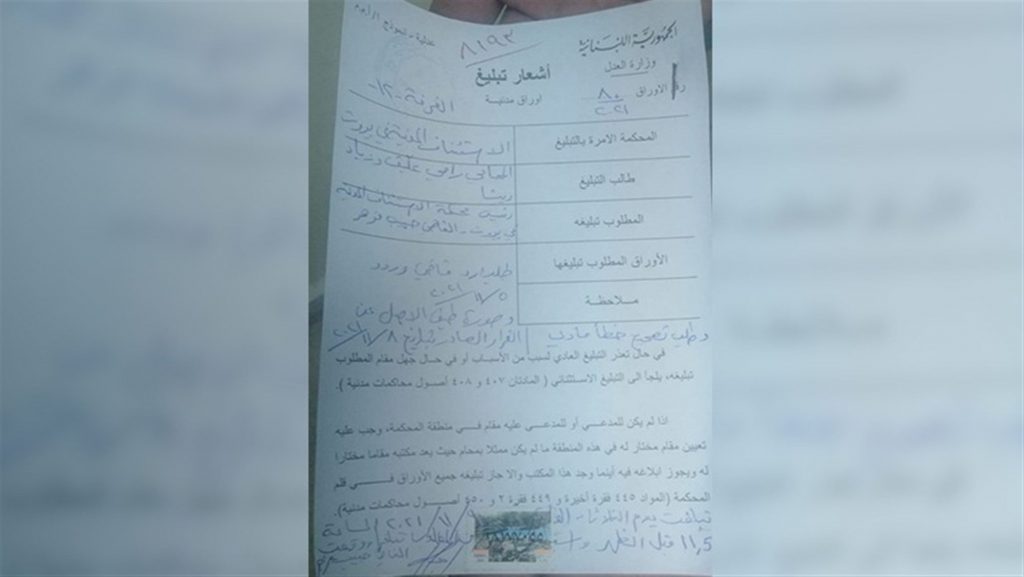 الجمهورية اللبنانية
وزارة العدل
عدلية - نموذج
٨١٩٣
أشعار تبليغ
اوراق مدنية
رقم الاوراق ٨٠/٢٠٢١
الغرفة -١٢-
المحكمة الامرة بالتبليغ
الاستئناف المدنية في بيروت
طالب التبليغ
المحامي رامي عليق وزياد
ريشا
المطلوب تبليغه
رئيس محكمة الاستئناف المدنية
في بيروت - القاضي حبيب مزهر
الأوراق المطلوب تبليغها
طلب رد قاضي وردود
٥/١١/٢٠٢١
ملاحظة
وصورة طبق الاصل عن
القرار الصادر بتاريخ ٨/١١/٢٠٢١
وطلب تصحيح خطأ مادي
في حال تعذر التبليغ العادي لسبب من الأسباب أو في حال جهل مقام المطلوب
تبليغه، يلجأ الى التبليغ الاستثنائي ( المادتان ٤٠٧ و ٤٠٨ أصول محاكمات مدنية ).
اذا لم يكن للمدعي أو للمدعى عليه مقام في منطقة المحكمة، وجب عليه
تعيين مقام مختار له في هذه المنطقة ما لم يكن ممثلا بمحام حيث يعد مكتبه مقاما مختارا
له ويجوز ابلاغه فيه أينما وجد هذا المكتب والا جاز تبليغه جميع الأوراق في قلم
المحكمة (المواد ٤٤٥ فقرة أخيرة و ٤٤٩ فقرة ٢ و ٤٥٠ أصول محاكمات مدنية).
تبلغت يوم الثلاثاء ٢٠٢١ الساعة
١١,٥ قبل الظهر